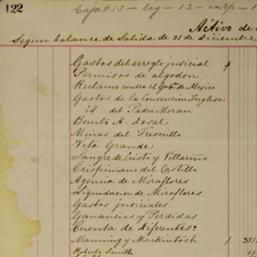 122
Caja #13 - leg - 12 - exp - 1
Activo de
Segun balance de Salida de 31 de Diciembre
Gastos del arreglo judicial $
Permisos de algodon
Reclamo contra el Gob.no de Mejico
Gastos de la Convencion Ynglesa
id del Padre Moran
Benito A. Nosal
Minas del Fresnillo
Veta Grande
Sangre de Cristo y Villariño
Crispiniano del Castillo
Agencia de Miraflores
Liquidacion de Miraflores
Gastos judiciales
Ganancias y Perdidas
Cuenta de Diferentes:
Manning y Mackintosh $ 351
Roberto Smith